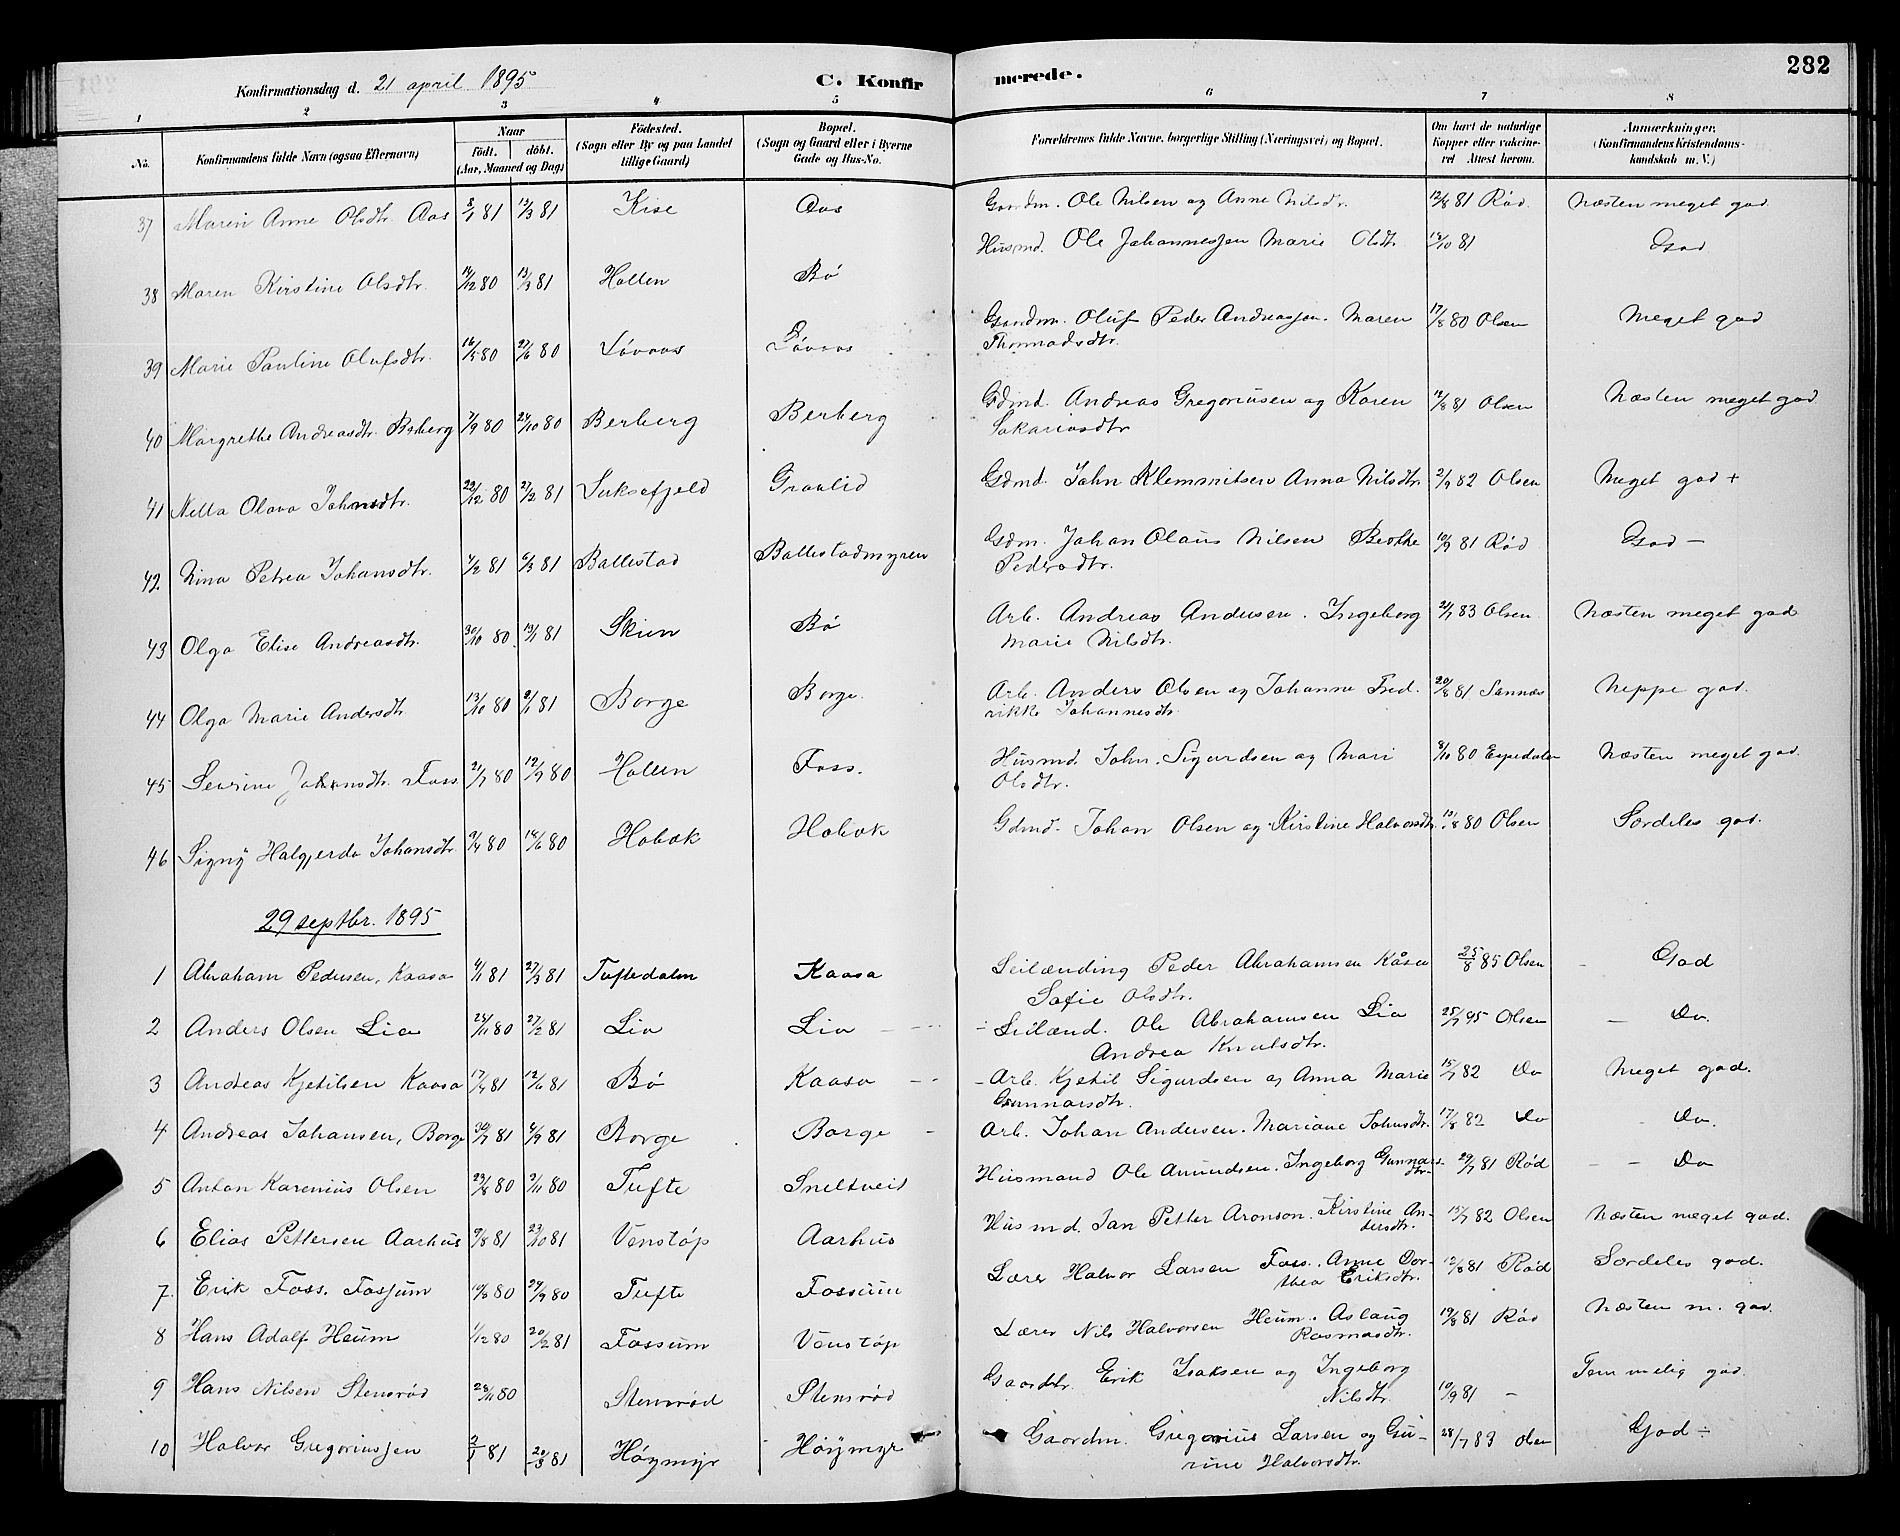 282
Konfirmationsdag d. 21 april 1895 C. Konfirmerede.
1 2 3 4 5 6 7 8
No. Konfirmandens fulde Navn (ogsaa Efternavn) Naar født. døbt. (Aar, Maaned og Dag) Fødested. (Sogn eller By og paa Landet tillige Gaard) Bopæl. (Sogn og Gaard eller i Byerne Gade og Hus-No. Forældrenes fulde Navne, borgerlige Stilling (Næringsvei) og Bopæl. Om havt de naturlige Kopper eller vakcineret Attest herom. Anmærkninger. (Konfirmandens Kristendomskundskab m. V.)
37 Maren Anne Olsdtr. Aas 8/1 81 13/3 81 Kise Aas Gaardm. Ole Nilsen og Anne Nilsdtr. 12/8 81 Rød Næsten meget god
38 Maren Kirstine Olsdtr. 14/12 80 13/3 81 Hollen Bø Husmd. Ole Johannessen Marie Olsdtr. 13/10 81 God
39 Marie Pauline Olufsdtr. 16/5 80 27/6 80 Løvaas Løvaas Gaardm. Oluf Peder Andreassen. Maren Thomasdtr. 17/8 80 Olsen Meget god
40 Margrethe Andreasdtr. Berberg 7/9 80 24/10 80 Berberg Berberg Gdmd. Andreas Gregoriusen og Karen Sakariasdtr 12/8 81 Olsen Næsten meget god
41 Nella Olava Johnsdtr. 22/12 80 27/2 81 Luksefjeld Graalid Gdmd. John Klemmitsen Anna Nilsdtr 2/9 82 Olsen Meget god +
42 Nina Petrea Johansdtr. 7/2 81 6/3 81 Ballestad Ballestadmyren Gdm. Johan Olaus Nilsen Berthe Pedersdtr. 10/9 81 Rød God –
43 Olga Elise Andreasdtr. 30/10 80 13/1 81 Skien Bø Arb. Andreas Andersen. Ingeborg Marie Nilsdtr. 2/7 83 Olsen Næsten meget god
44 Olga Marie Andersdtr 13/10 80 9/1 81 Borge Borge Arb. Anders Olsen og Johanne Fredrikke Johannesdtr 20/8 81 Sannæs Neppe god.
45 Severine Johansdtr. Foss 21/7 80 12/9 80 Hollen Foss. Husmd. John. Sigurdsen og Mari Olsdtr. 8/10 80 Espedalen Næsten meget god.
46 Signy Halgjerda Johansdtr 9/4 80 14/6 80 Hobæk Hobæk Gdmd. Johan Olsen og Kirstine Halvorsdtr. 13/8 80 Olsen Særdeles god.
29 septbr. 1895
1 Abraham Pedersen, Kaasa 4/1 81 27/3 81 Tuftedalen Kaasa Leilænding Peder Abrahamsen Kåsa Sofie Olsdtr. 25/8 85 Olsen God
2 Anders Olsen Lia 23/11 80 27/2 81 Lia Lia Leilænd. Ole Abrahamsen Lia Andrea Knutsdtr. 25/7 95 Olsen Do.
3 Andreas Kjetilsen Kaasa 17/4 81 12/6 81 Bø Kaasa Arb. Kjetil Sigurdsen og Anna Marie Gunnarsdtr. 15/7 82 Do Meget god.
4 Andreas Johansen, Borge 30/7 81 4/9 81 Borge Borge Arb. Johan Andersen. Mariane Johnsdtr. 17/8 82 Do Do.
5 Anton Karenius Olsen 29/8 80 9/11 80 Tufte Sneltveit Husmand Ole Amundsen. Ingeborg Gunnarsdtr. 29/7 81 Rød Do
6 Elias Pettersen Aarhus 9/8 81 23/10 81 Venstøp Aarhus Husmd. Jan Petter Aronson. Kirstine Andersdtr. 13/7 82 Olsen Næsten meget god.
7 Erik Foss. Fossum 10/6 80 24/9 80 Tufte Fossum Lærer Halvor Larsen Foss. Anne Dorthea Eriksdtr. 12/8 81 Rød Særdeles god.
8 Hans Adolf Heum 1/12 80 20/2 81 Fossum Venstøp Lærer Nils Halvorsen Heum. Aslaug Rasmusdtr. 19/8 81 Rød Næsten m. god.
9 Hans Nilsen Stensrød 28/11 80 Stensrød Stensrød Gaardbr. Erik Isaksen og Ingeborg Nilsdtr. 10/9 81 – Temmelig god.
10 Halvor Gregoriussen 2/1 81 20/3 81 Høymyr Høymyr Gaardm. Gregorius Larsen og Gurine Halvorsdtr. 28/7 83 Olsen God ÷